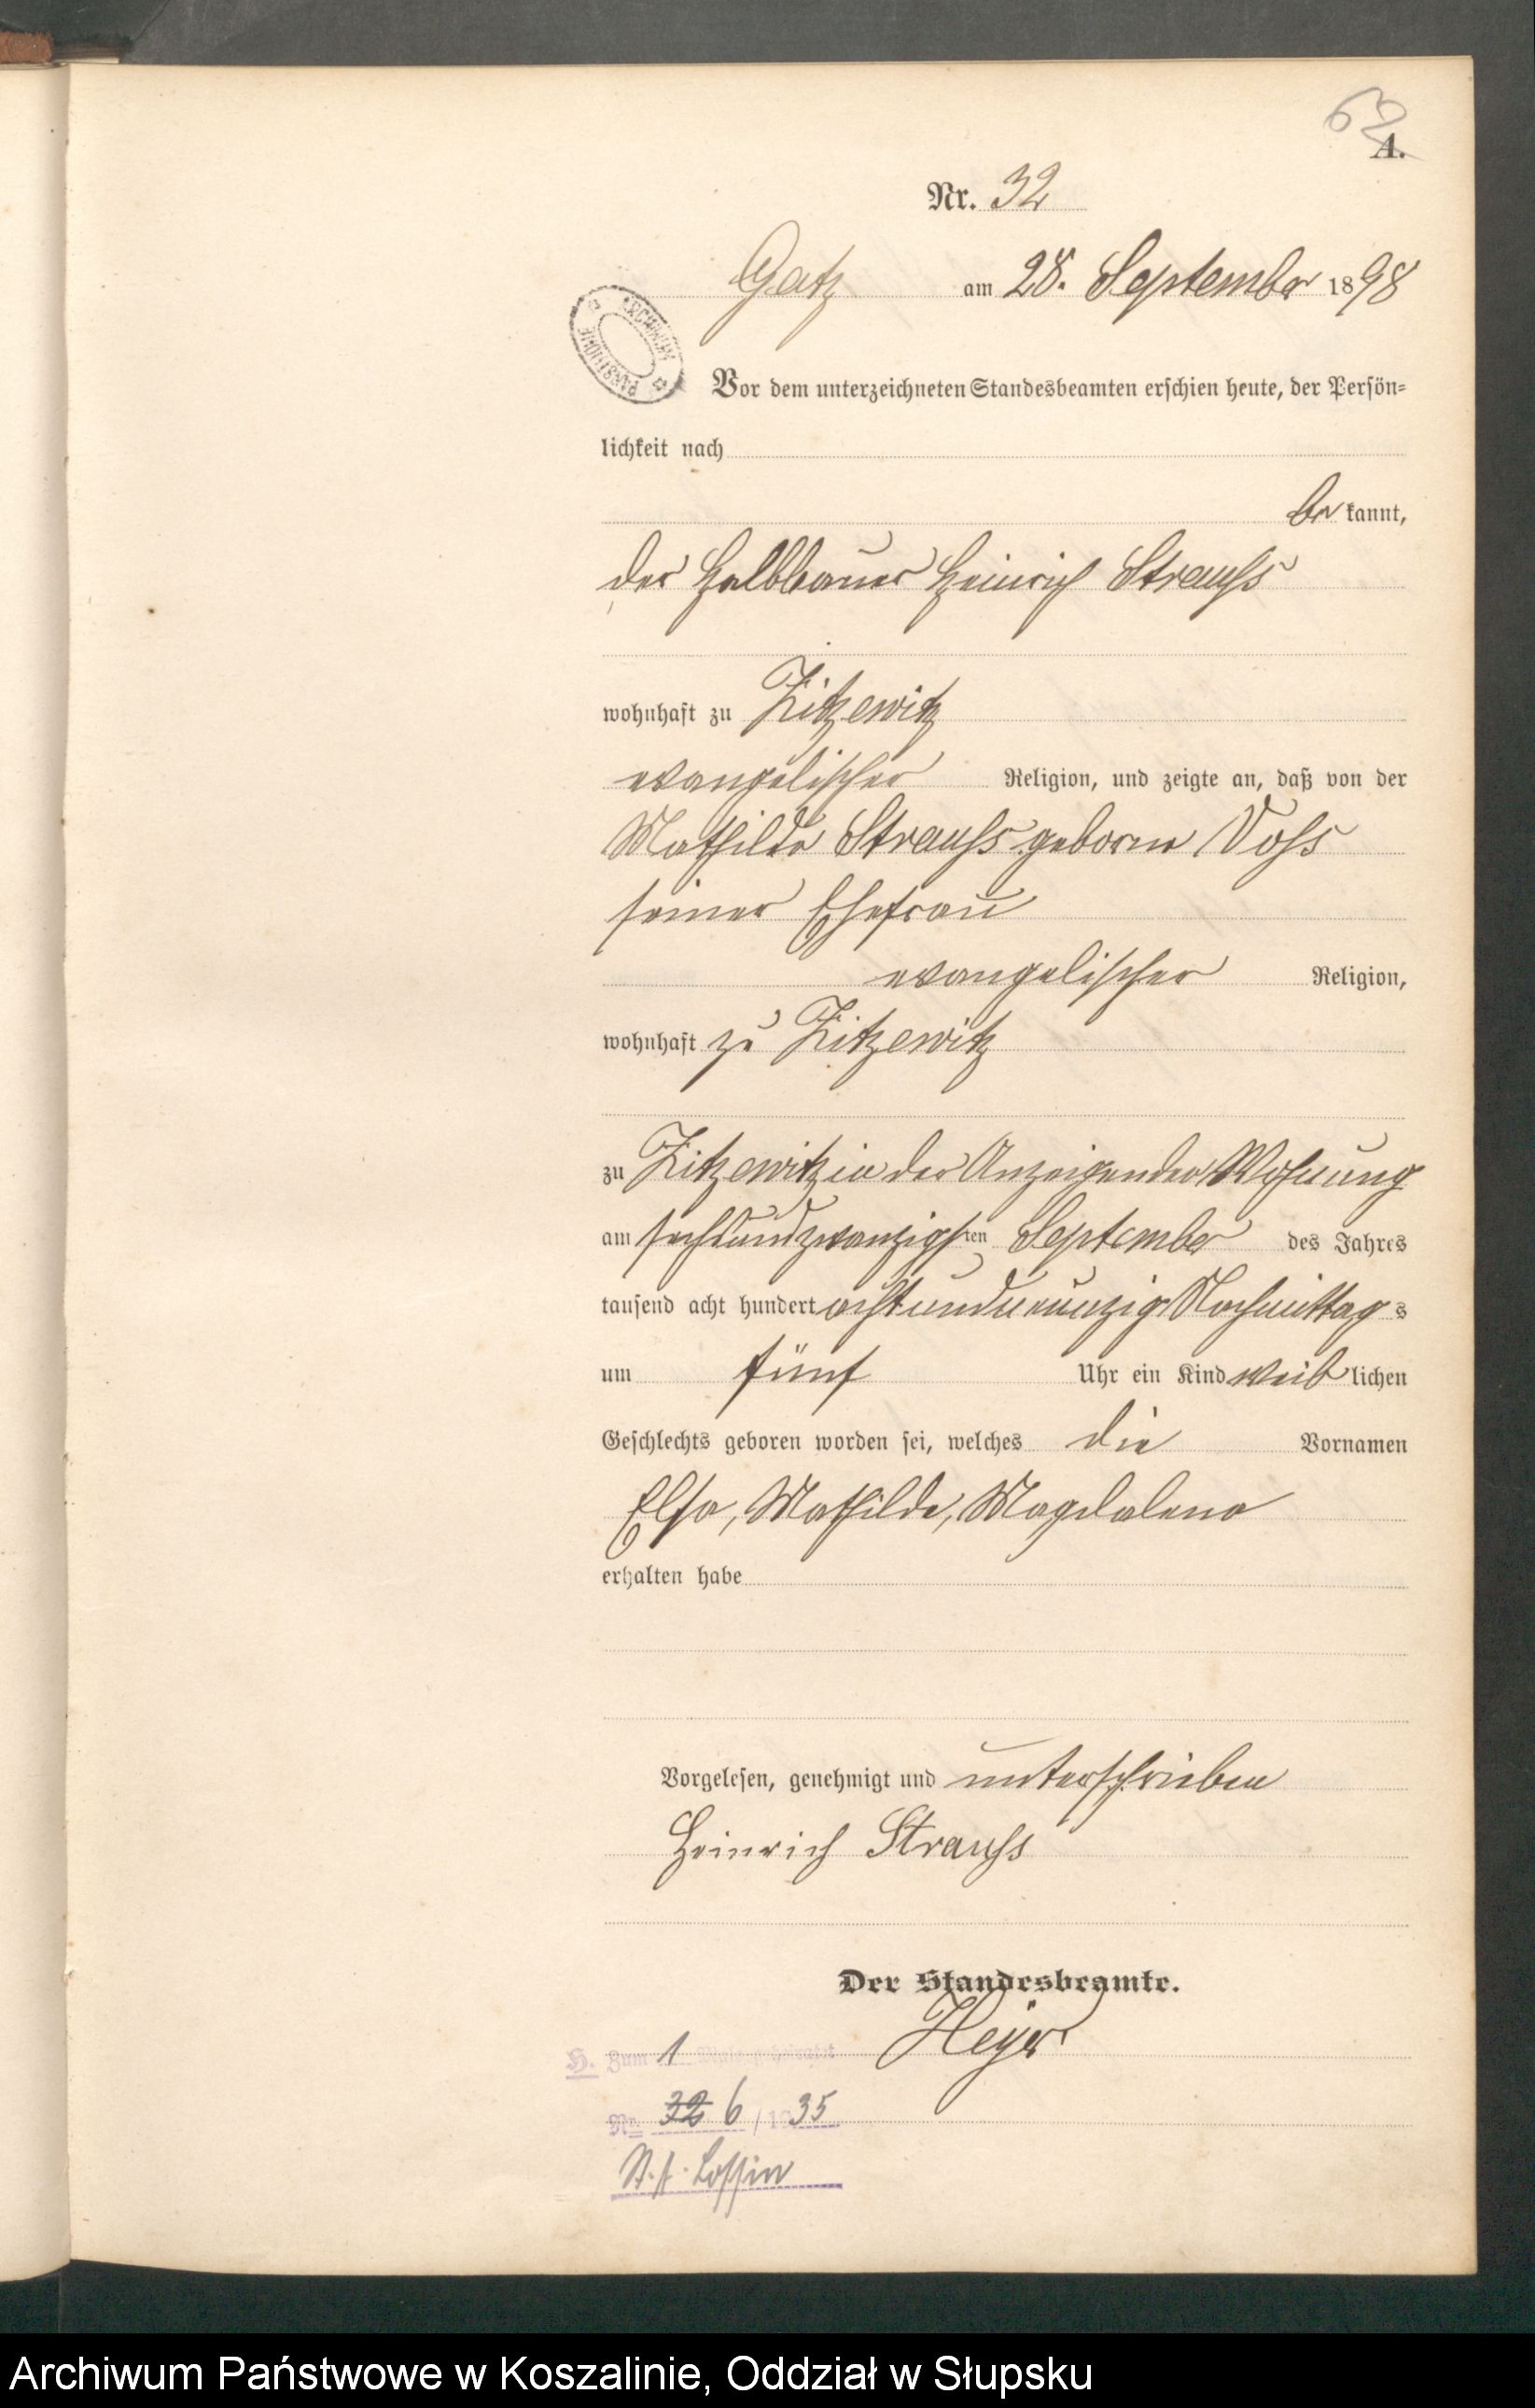 62
A.
Nr. 32
Gatz am 28. September 1898
ARCHIWUM PAŃSTWOWE
Vor dem unterzeichneten Standesbeamten erschien heute, der Persön-
lichkeit nach
be kannt,
der Halbbauer Heinrich Strauss
wohnhaft zu Zitzewitz
evangelischer Religion, und zeigte an, daß von der
Mathilde Strauss geborne Voss
seiner Ehefrau
evangelischer Religion,
wohnhaft zu Zitzewitz
zu Zitzewitz in der Anzeigenden Wohnung
am sechsundzwanzigsten September des Jahres
tausend acht hundert achtundneunzig Nachmittags
um fünf Uhr ein Kind weiblichen
Geschlechts geboren worden sei, welches die Vornamen
Elsa, Mathilde, Magdalena
erhalten habe
Vorgelesen, genehmigt und unterschrieben
Heinrich Strauss
Der Standesbeamte.
Heyer
H. Zum 1
Nr. 32 6 / 1935
St. A. Lossin
Archiwum Państwowe w Koszalinie, Oddział w Słupsku